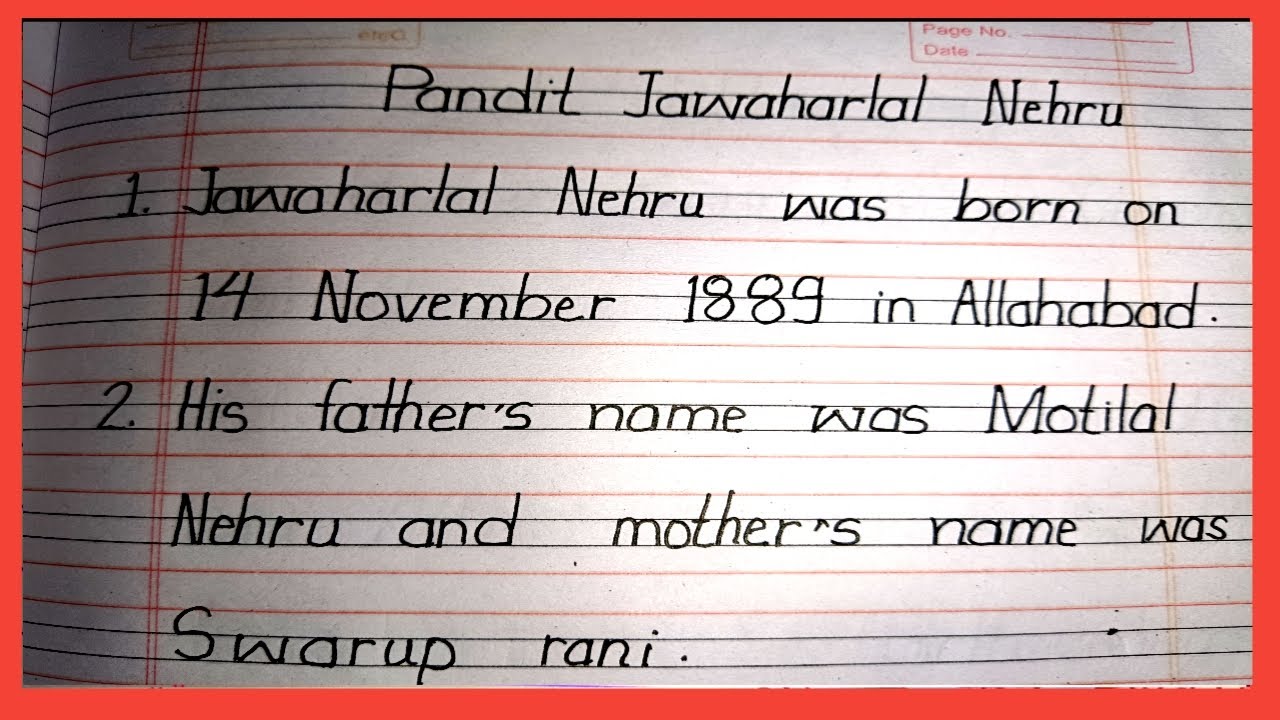 Page No.
Date
Date
Pandit Jawaharlal Nehru
1. Jawaharlal Nehru was born on
14 November 1889 in Allahabad.
2. His father's name was Motilal
Nehru and mother's name was
Swarup rani.